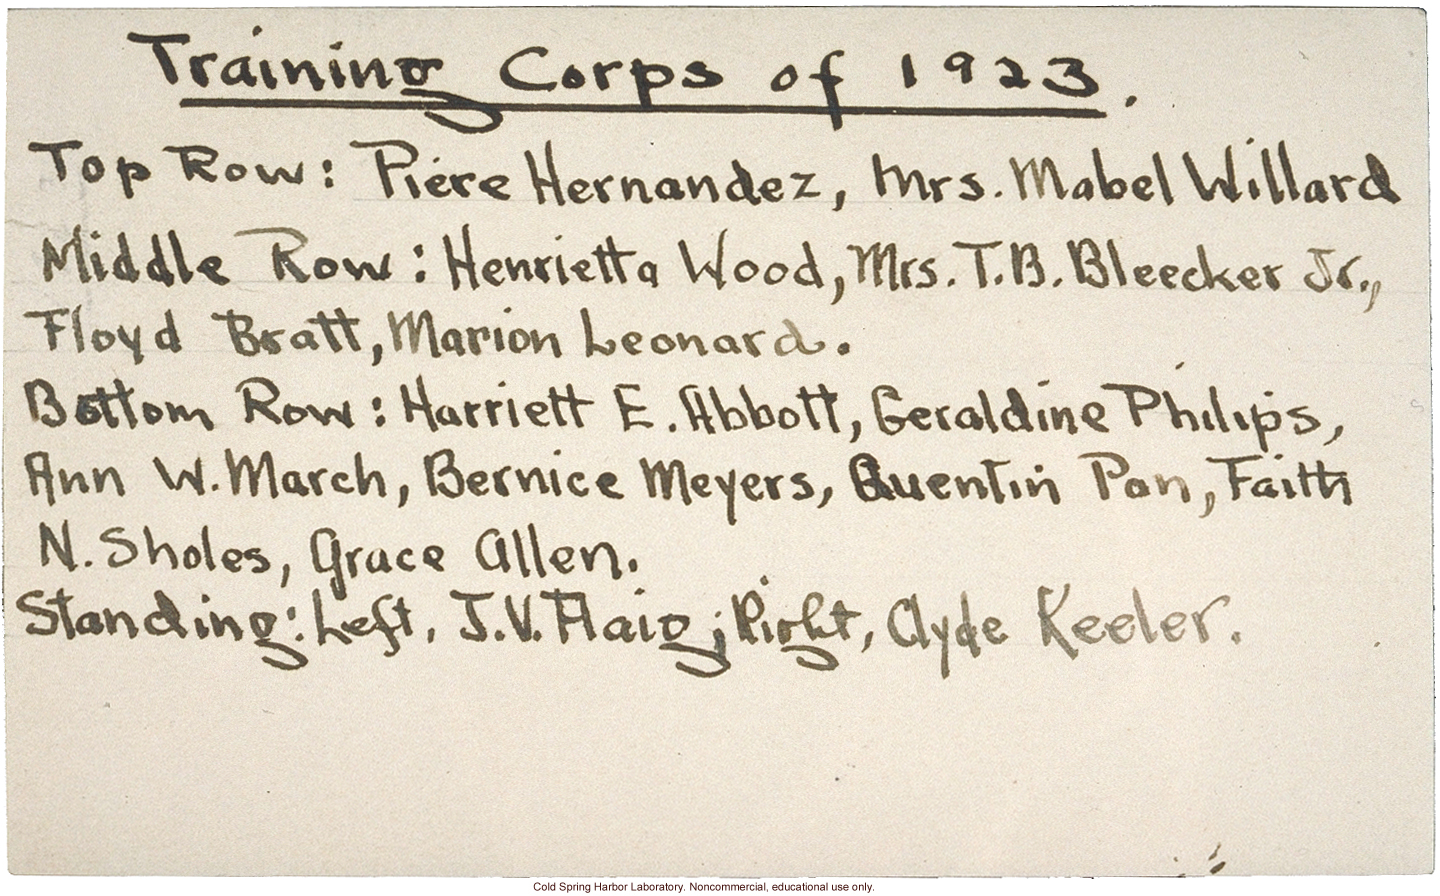 Training Corps of 1923.
Top Row: Piere Hernandez, Mrs. Mabel Willard
Middle Row: Henrietta Wood, Mrs. T.B. Bleecker Jr.,
Floyd Bratt, Marion Leonard.
Bottom Row: Harriett E. Abbott, Geraldine Philips,
Ann W. March, Bernice Meyers, Quentin Pan, Faith
N. Sholes, Grace Allen.
Standing: Left, J.V. Haig; Right, Clyde Keeler.
Cold Spring Harbor Laboratory. Noncommercial, educational use only.